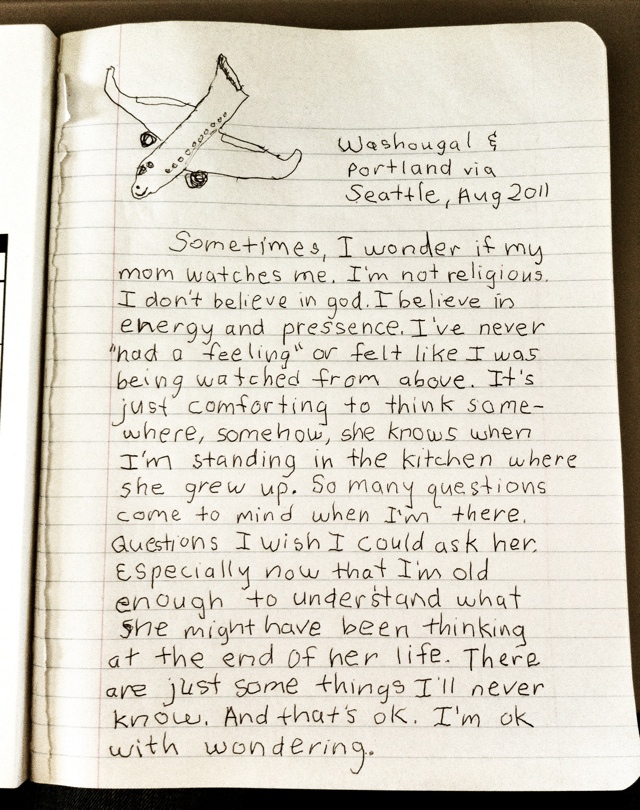 Washougal &
Portland via
Seattle, Aug 2011
Sometimes, I wonder if my
mom watches me. I'm not religious.
I don't believe in god. I believe in
energy and pressence. I've never
"had a feeling" or felt like I was
being watched from above. It's
just comforting to think some-
where, somehow, she knows when
I'm standing in the kitchen where
she grew up. So many questions
come to mind when I'm there.
Questions I wish I could ask her.
Especially now that I'm old
enough to understand what
she might have been thinking
at the end of her life. There
are just some things I'll never
know. And that's ok. I'm ok
with wondering.